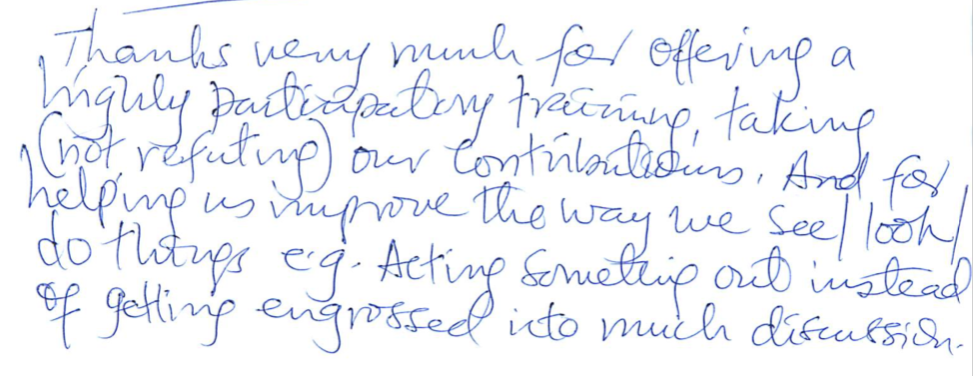 Thanks very much for offering a
highly participatory training, taking
(not refuting) our contributions. And for
helping us improve the way we see/look/
do things e.g. Acting something out instead
of getting engrossed into much discussion.